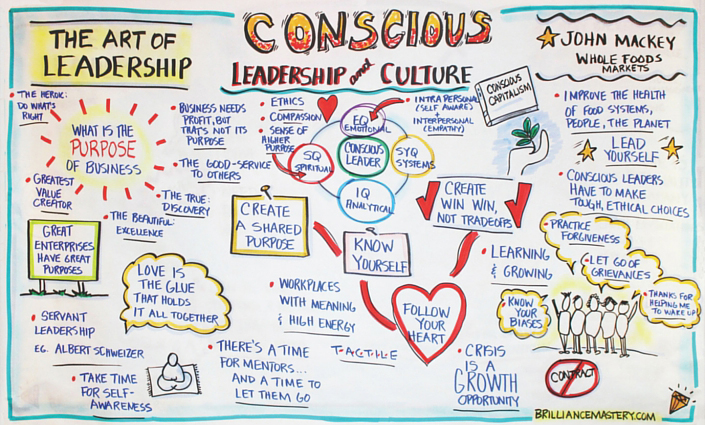 THE ART OF
LEADERSHIP
CONSCIOUS
LEADERSHIP and CULTURE
JOHN MACKEY
WHOLE FOODS
MARKETS
• THE HEROIC:
DO WHAT'S
RIGHT
WHAT IS THE
PURPOSE
OF BUSINESS
• GREATEST
VALUE
CREATOR
• THE BEAUTIFUL:
EXCELLENCE
• THE TRUE:
DISCOVERY
• BUSINESS NEEDS
PROFIT, BUT
THAT'S NOT ITS
PURPOSE
• THE GOOD-SERVICE
TO OTHERS
• ETHICS
• COMPASSION
• SENSE OF
HIGHER
PURPOSE
EQ
EMOTIONAL
SQ
SPIRITUAL
CONSCIOUS
LEADER
SYQ
SYSTEMS
IQ
ANALYTICAL
• INTRA PERSONAL
(SELF AWARE)
+
INTERPERSONAL
(EMPATHY)
CONSCIOUS
CAPITALISM
• IMPROVE THE HEALTH
OF FOOD SYSTEMS,
PEOPLE, THE PLANET
LEAD
YOURSELF
• CONSCIOUS LEADERS
HAVE TO MAKE
TOUGH, ETHICAL CHOICES
GREAT
ENTERPRISES
HAVE GREAT
PURPOSES
LOVE IS
THE GLUE
THAT HOLDS
IT ALL TOGETHER
CREATE
A SHARED
PURPOSE
KNOW
YOURSELF
CREATE
WIN WIN,
NOT TRADEOFFS
FOLLOW
YOUR
HEART
• WORKPLACES
WITH MEANING
& HIGH ENERGY
• LEARNING
& GROWING
• PRACTICE
FORGIVENESS
• LET GO OF
GRIEVANCES
• KNOW
YOUR
BIASES
• THANKS FOR
HELPING ME
TO WAKE UP
• SERVANT
LEADERSHIP
EG. ALBERT SCHWEIZER
• TAKE TIME
FOR SELF-
AWARENESS
• THERE'S A TIME
FOR MENTORS...
AND A TIME TO
LET THEM GO
• CRISIS
IS A
GROWTH
OPPORTUNITY
CONTRACT
BRILLIANCEMASTERY.COM